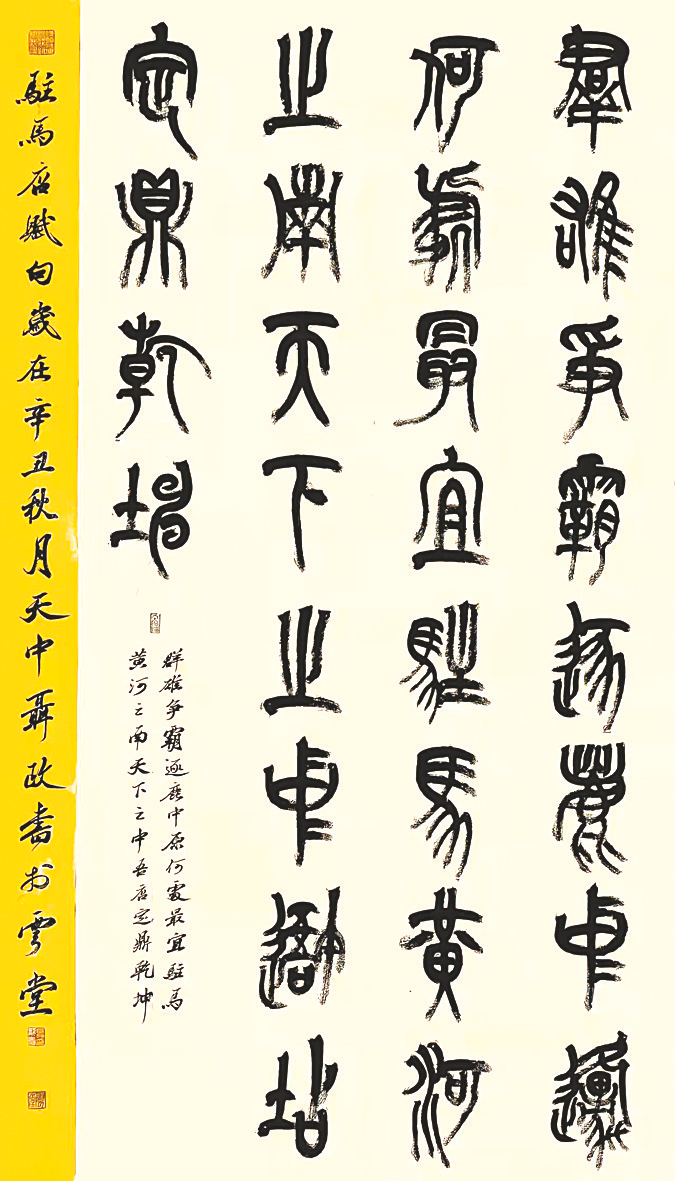 羣雄爭霸逐鹿中邍
何處最宜駐馬黃河
之南天下之中吾坫
定鼎乾坤
群雄争霸逐鹿中原何處最宜駐馬
黄河之南天下之中吾店定鼎乾坤
駐馬店賦句歲在辛丑秋月天中聶政書於雩堂